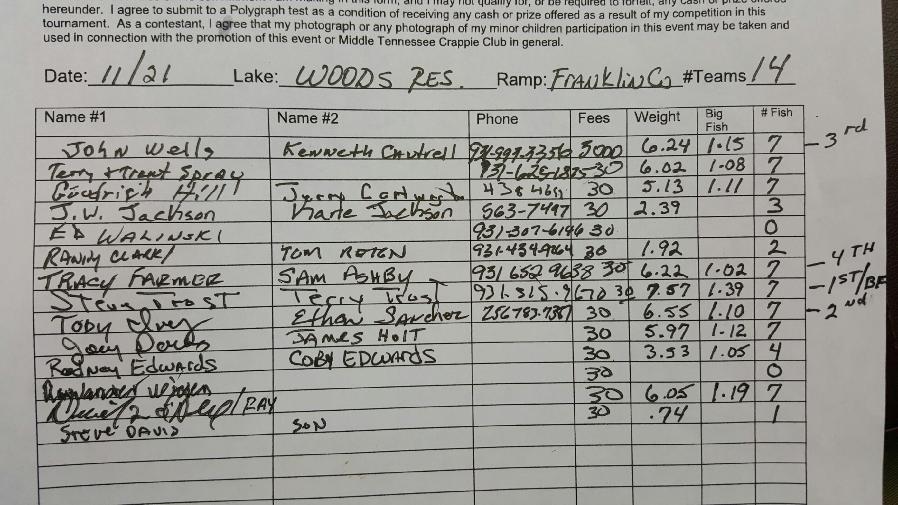 hereunder. I agree to submit to a Polygraph test as a condition of receiving any cash or prize offered as a result of my competition in this
tournament. As a contestant, I agree that my photograph or any photograph of my minor children participation in this event may be taken and
used in connection with the promotion of this event or Middle Tennessee Crappie Club in general.
Date: 11/21 Lake: WOODS RES. Ramp: FRANKLIN CO #Teams 14
Name #1 Name #2 Phone Fees Weight Big Fish # Fish
John Wells Kenneth Cautrell 3000 6.24 1.15 7 - 3rd
Terry + Trent Spray 30 6.02 1.08 7
Hill Jerry 30 5.13 1.11 7
J.W. Jackson Karie Jackson 563-7497 30 2.39 3
ED WALINSKI 931-307-6146 30 0
RANDY CLARK TOM 931-434-9964 30 1.92 2
TRACY FARMER SAM ASHBY 931 652 9658 30 6.22 1.02 7 - 4TH
Steve Trost Terry Trost 931.315.9670 30 7.57 1.39 7 - 1ST/BF
Toby Ethan Sanchez 256783-7351 30 6.55 1.10 7 - 2nd
Joey JAMES HOLT 30 5.97 1.12 7
Rodney EDWARDS COBY EDWARDS 30 3.53 1.05 4
30 0
30 6.05 1.19 7
RAY 30 .74 1
STEVE DAVIS SON